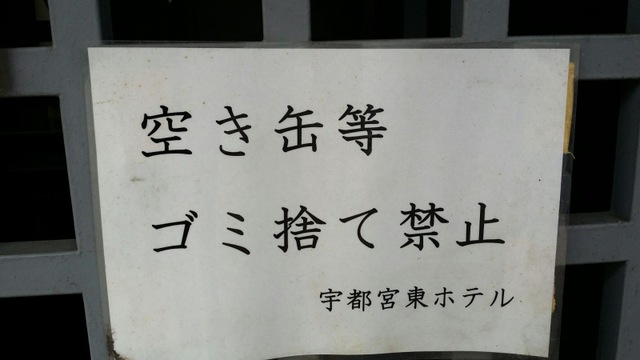 空き缶等
ゴミ捨て禁止
宇都宮東ホテル